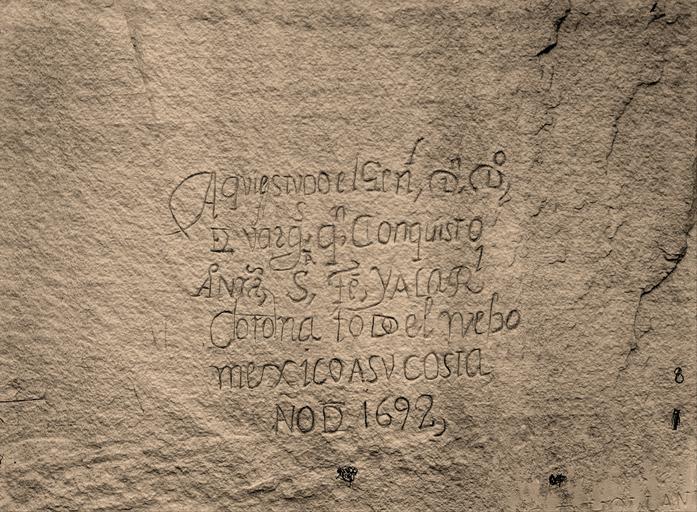 Aqui estudo el Genˡ, Dⁿ, Dº,
De vargˢ, qⁿ, Conquisto
Anrã, Sᵗᴬ, Fe, YALA Rˡ
Corona todo el nuebo
mexico ASU COSTA
ÑO D 1692,
8